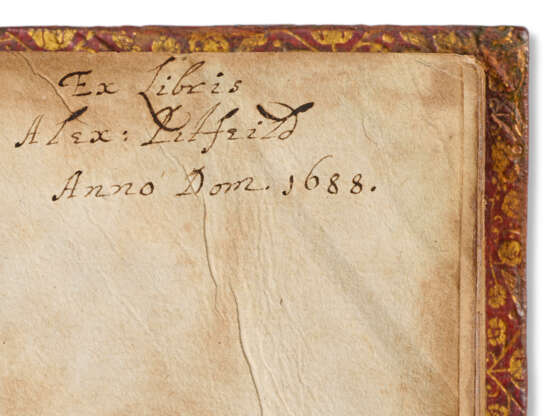 Ex Libris
Alex: Pitfeild
Anno Dom. 1688.